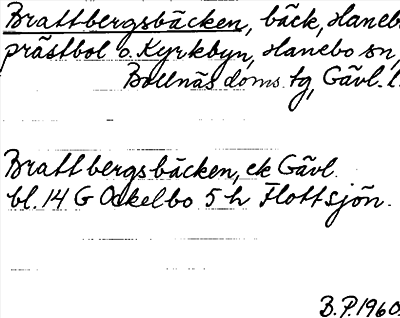 Brattbergsbäcken, bäck, Haneb
prästbol o. Kyrkbyn, Hanebo sn,
Bollnäs doms. tg, Gävl. l.
Brattbergsbäcken, ek Gävl.
bl. 14 G Ockelbo 5 h Flottsjön.
B.P. 1960.